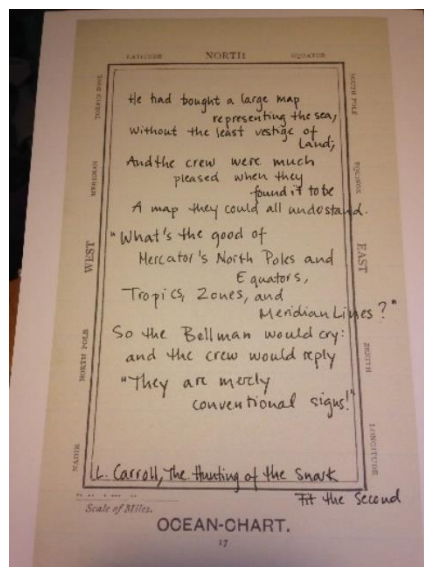 LATITUDE NORTH EQUATOR
SOUTH POLE
EQUINOX
EAST
ZENITH
LONGITUDE
MERIDIAN
WEST
NORTH POLE
NADIR
He had bought a large map
representing the sea,
Without the least vestige of
land;
And the crew were much
pleased when they
found it to be
A map they could all understand.
"What's the good of
Mercator's North Poles and
Equators,
Tropics, Zones, and
Meridian Lines?"
So the Bellman would cry:
and the crew would reply
"They are merely
conventional signs!"
L. Carroll, The Hunting of the Snark
Fit the Second
Scale of Miles.
OCEAN-CHART.
17